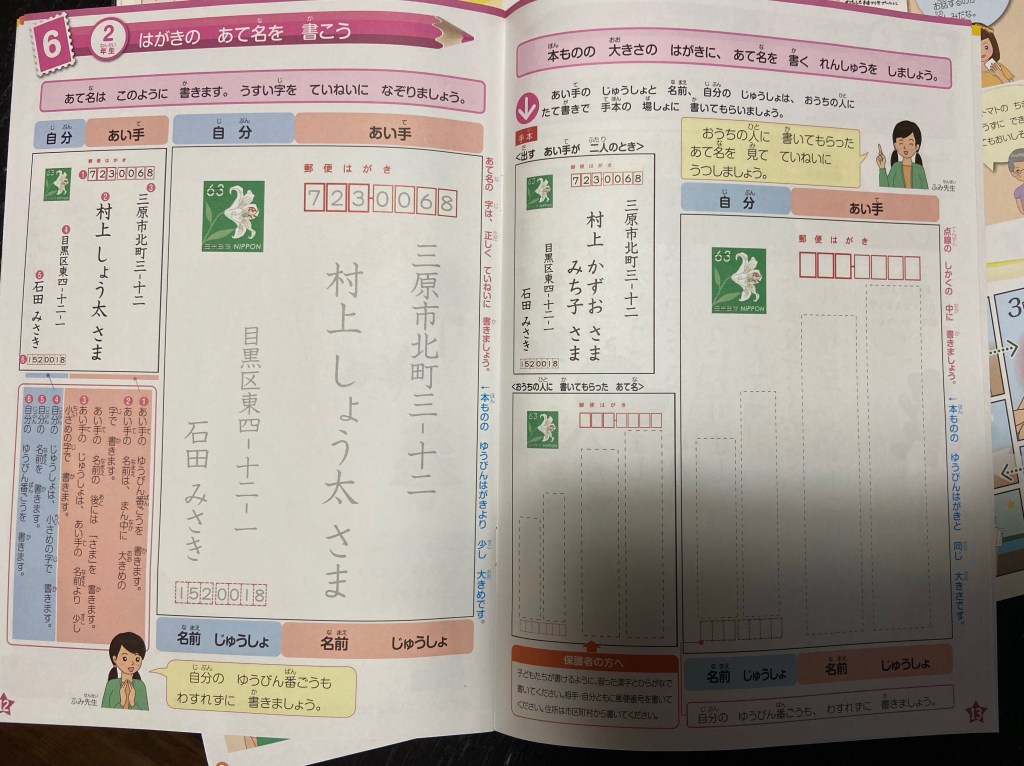 6
2年生
はがきの あて名を 書こう
あて名は このように 書きます。 うすい字を ていねいに なぞりましょう。
自分
あい手
郵便はがき
❶7230068
❸三原市北町三-十二
❷村上 しょう太 さま
❹目黒区東四-十二-一
❺石田 みさき
❻1520018
❶あい手の ゆうびん番ごうを 書きます。
❷あい手の 名前は、まん中に 大きめの
字で 書きます。
あい手の 名前の 後には 「さま」を 書きます。
❸あい手の じゅうしょは、あい手の 名前より 少し
小さめの字で 書きます。
❹自分の じゅうしょは、小さめの字で 書きます。
❺自分の 名前を 書きます。
❻自分の ゆうびん番ごうを 書きます。
自分
あい手
63
NIPPON
郵便はがき
7230068
三原市北町三-十二
村上 しょう太 さま
目黒区東四-十二-一
石田 みさき
1520018
名前 じゅうしょ
名前 じゅうしょ
あて名の 字は、正しく ていねいに 書きましょう。
↑本ものの ゆうびんはがきより 少し 大きめです。
自分の ゆうびん番ごうも
わすれずに 書きましょう。
ふみ先生
12
本ものの 大きさの はがきに、あて名を 書く れんしゅうを しましょう。
あい手の じゅうしょと 名前、自分の じゅうしょは、おうちの人に
たて書きで 手本の 場しょに 書いてもらいましょう。
手本
<出す あい手が 二人のとき>
郵便はがき
7230068
三原市北町三-十二
村上 かずお さま
みち子 さま
目黒区東四-十二-一
石田 みさき
1520018
おうちの人に 書いてもらった
あて名を 見て ていねいに
うつしましょう。
ふみ先生
<おうちの人に 書いてもらった あて名>
郵便はがき
保護者の方へ
子どもたちが書けるように、習った漢字とひらがなで
書いてください。相手・自分ともに郵便番号を書いて
ください。住所は市区町村から書いてください。
自分
あい手
63
NIPPON
郵便はがき
名前 じゅうしょ
名前 じゅうしょ
点線の しかくの 中に 書きましょう。
↑本ものの ゆうびんはがきと 同じ 大きさです。
自分の ゆうびん番ごうも、わすれずに 書きましょう。
13